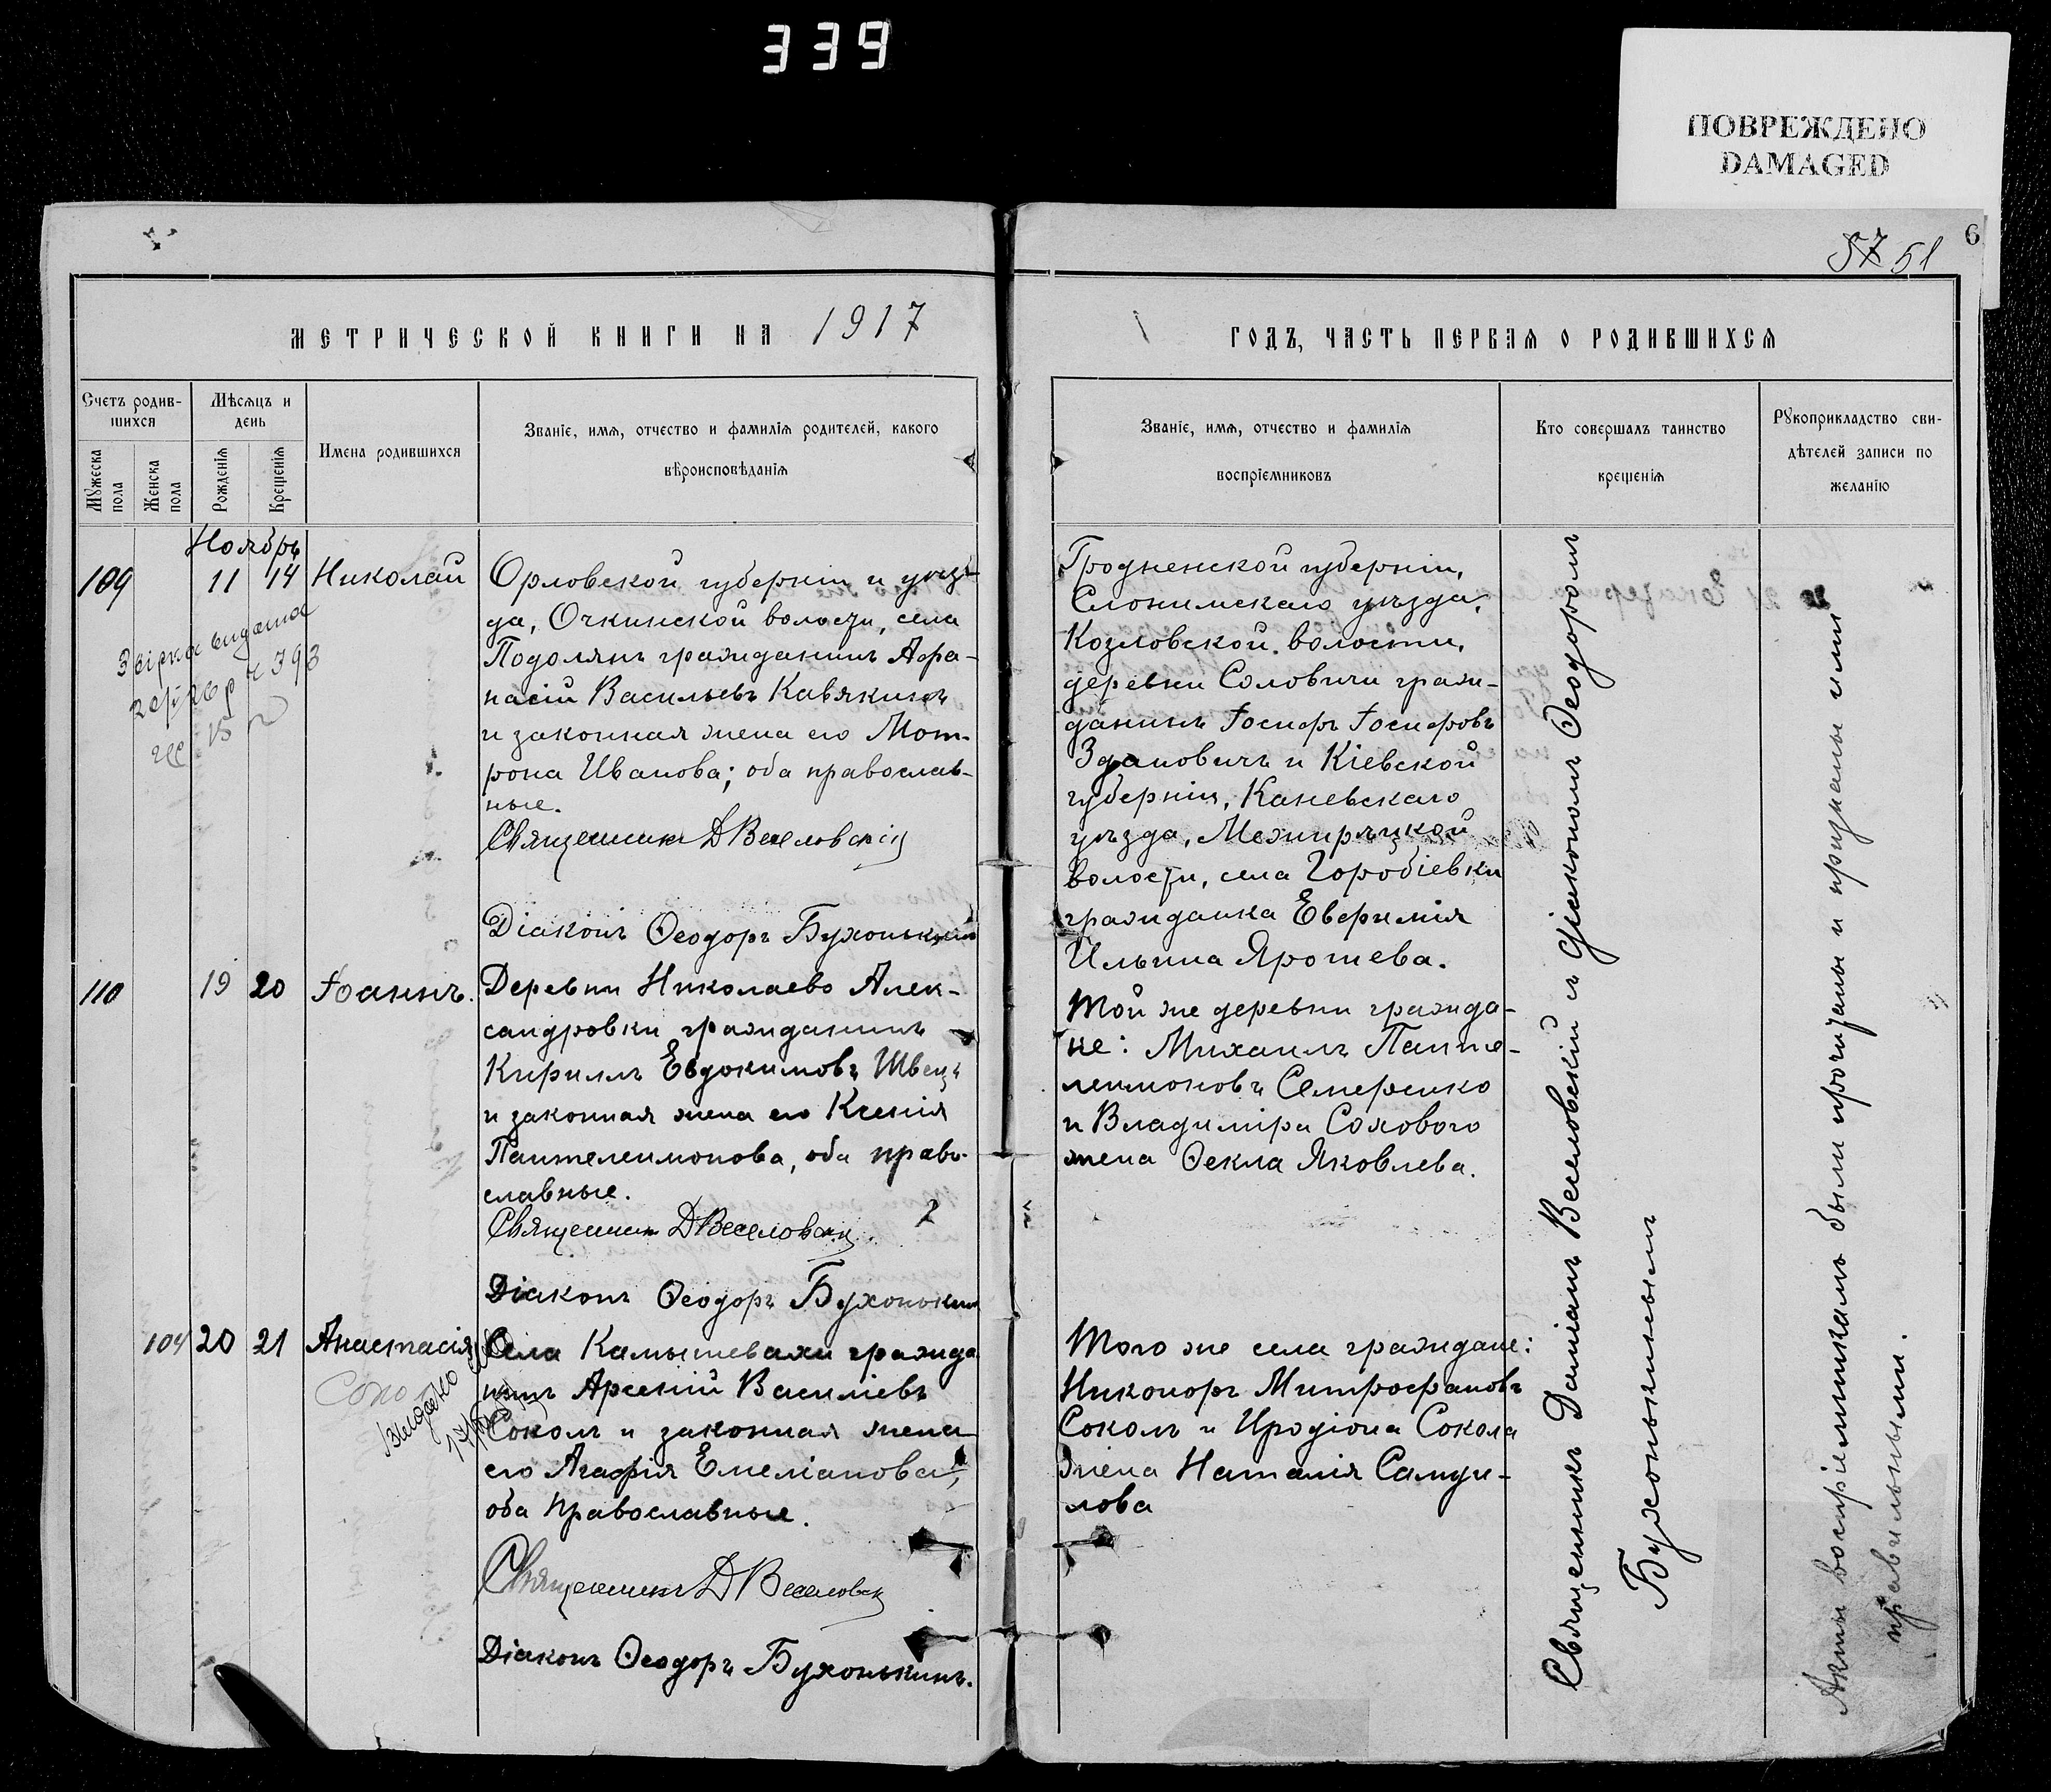 339
ПОВРЕЖДЕНО
DAMAGED
6
57 51
МЕТРИЧЕСКОЙ КНИГИ НА 1917
ГОДЪ, ЧАСТЬ ПЕРВАЯ О РОДИВШИХСЯ
Счетъ родив-
шихся
Мужеска пола
Женска пола
Мѣсяцъ и
день
Рожденія
Крещенія
Имена родившихся
Званіе, имя, отчество и фамилія родителей, какого
вѣроисповѣданія
Званіе, имя, отчество и фамилія
воспріемниковъ
Кто совершалъ таинство
крещенія
Рукоприкладство сви-
дѣтелей записи по
желанію
Ноябрь
109 11 14 Николай
Орловской губерніи и уѣз-
да, Очкинской волости, села
Подолянъ гражданинъ Афа-
насій Васильевъ Кавякинъ
и законная жена его Мот-
рона Иванова; оба православ-
ные.
Священникъ Д Веселовскій
Діаконъ Ѳеодоръ Бухонькинъ
Гродненской губерніи,
Слонимскаго уѣзда,
Козловской волости,
деревни Соловичи граж-
данинъ Іосифъ Іосифовъ
Здановичъ и Кіевской
губерніи, Каневскаго
уѣзда, Межирѣцкой
волости, села Горобіевки
гражданка Евфимія
Ильина Ярошева.
110 19 20 Іоаннъ.
Деревни Николаево Алек-
сандровки гражданинъ
Кириллъ Евдокимовъ Швецъ
и законная жена его Ксенія
Пантелеимонова, оба право-
славные.
Священникъ Д Веселовскій
2
Діаконъ Ѳеодоръ Бухонькинъ
Той же деревни гражда-
не: Михаилъ Панте-
леимоновъ Семеренко
и Владиміра Сохового
жена Ѳекла Яковлева.
104 20 21 Анастасія
Села Камышевахи гражда
нинъ Арсеній Василіевъ
Соколъ и законная жена
его Агафія Емеліанова,
оба православные.
Священникъ Д Веселовскій
Діаконъ Ѳеодоръ Бухонькинъ.
Того же села граждане:
Никоноръ Митрофановъ
Соколъ и Иродіона Сокола
жена Наталія Самуи-
лова
Священникъ Даміанъ Веселовскій съ Діакономъ Ѳеодоромъ
Бухонькинымъ
Акты воспріемникамъ были прочитаны и признаны ими
правильными.